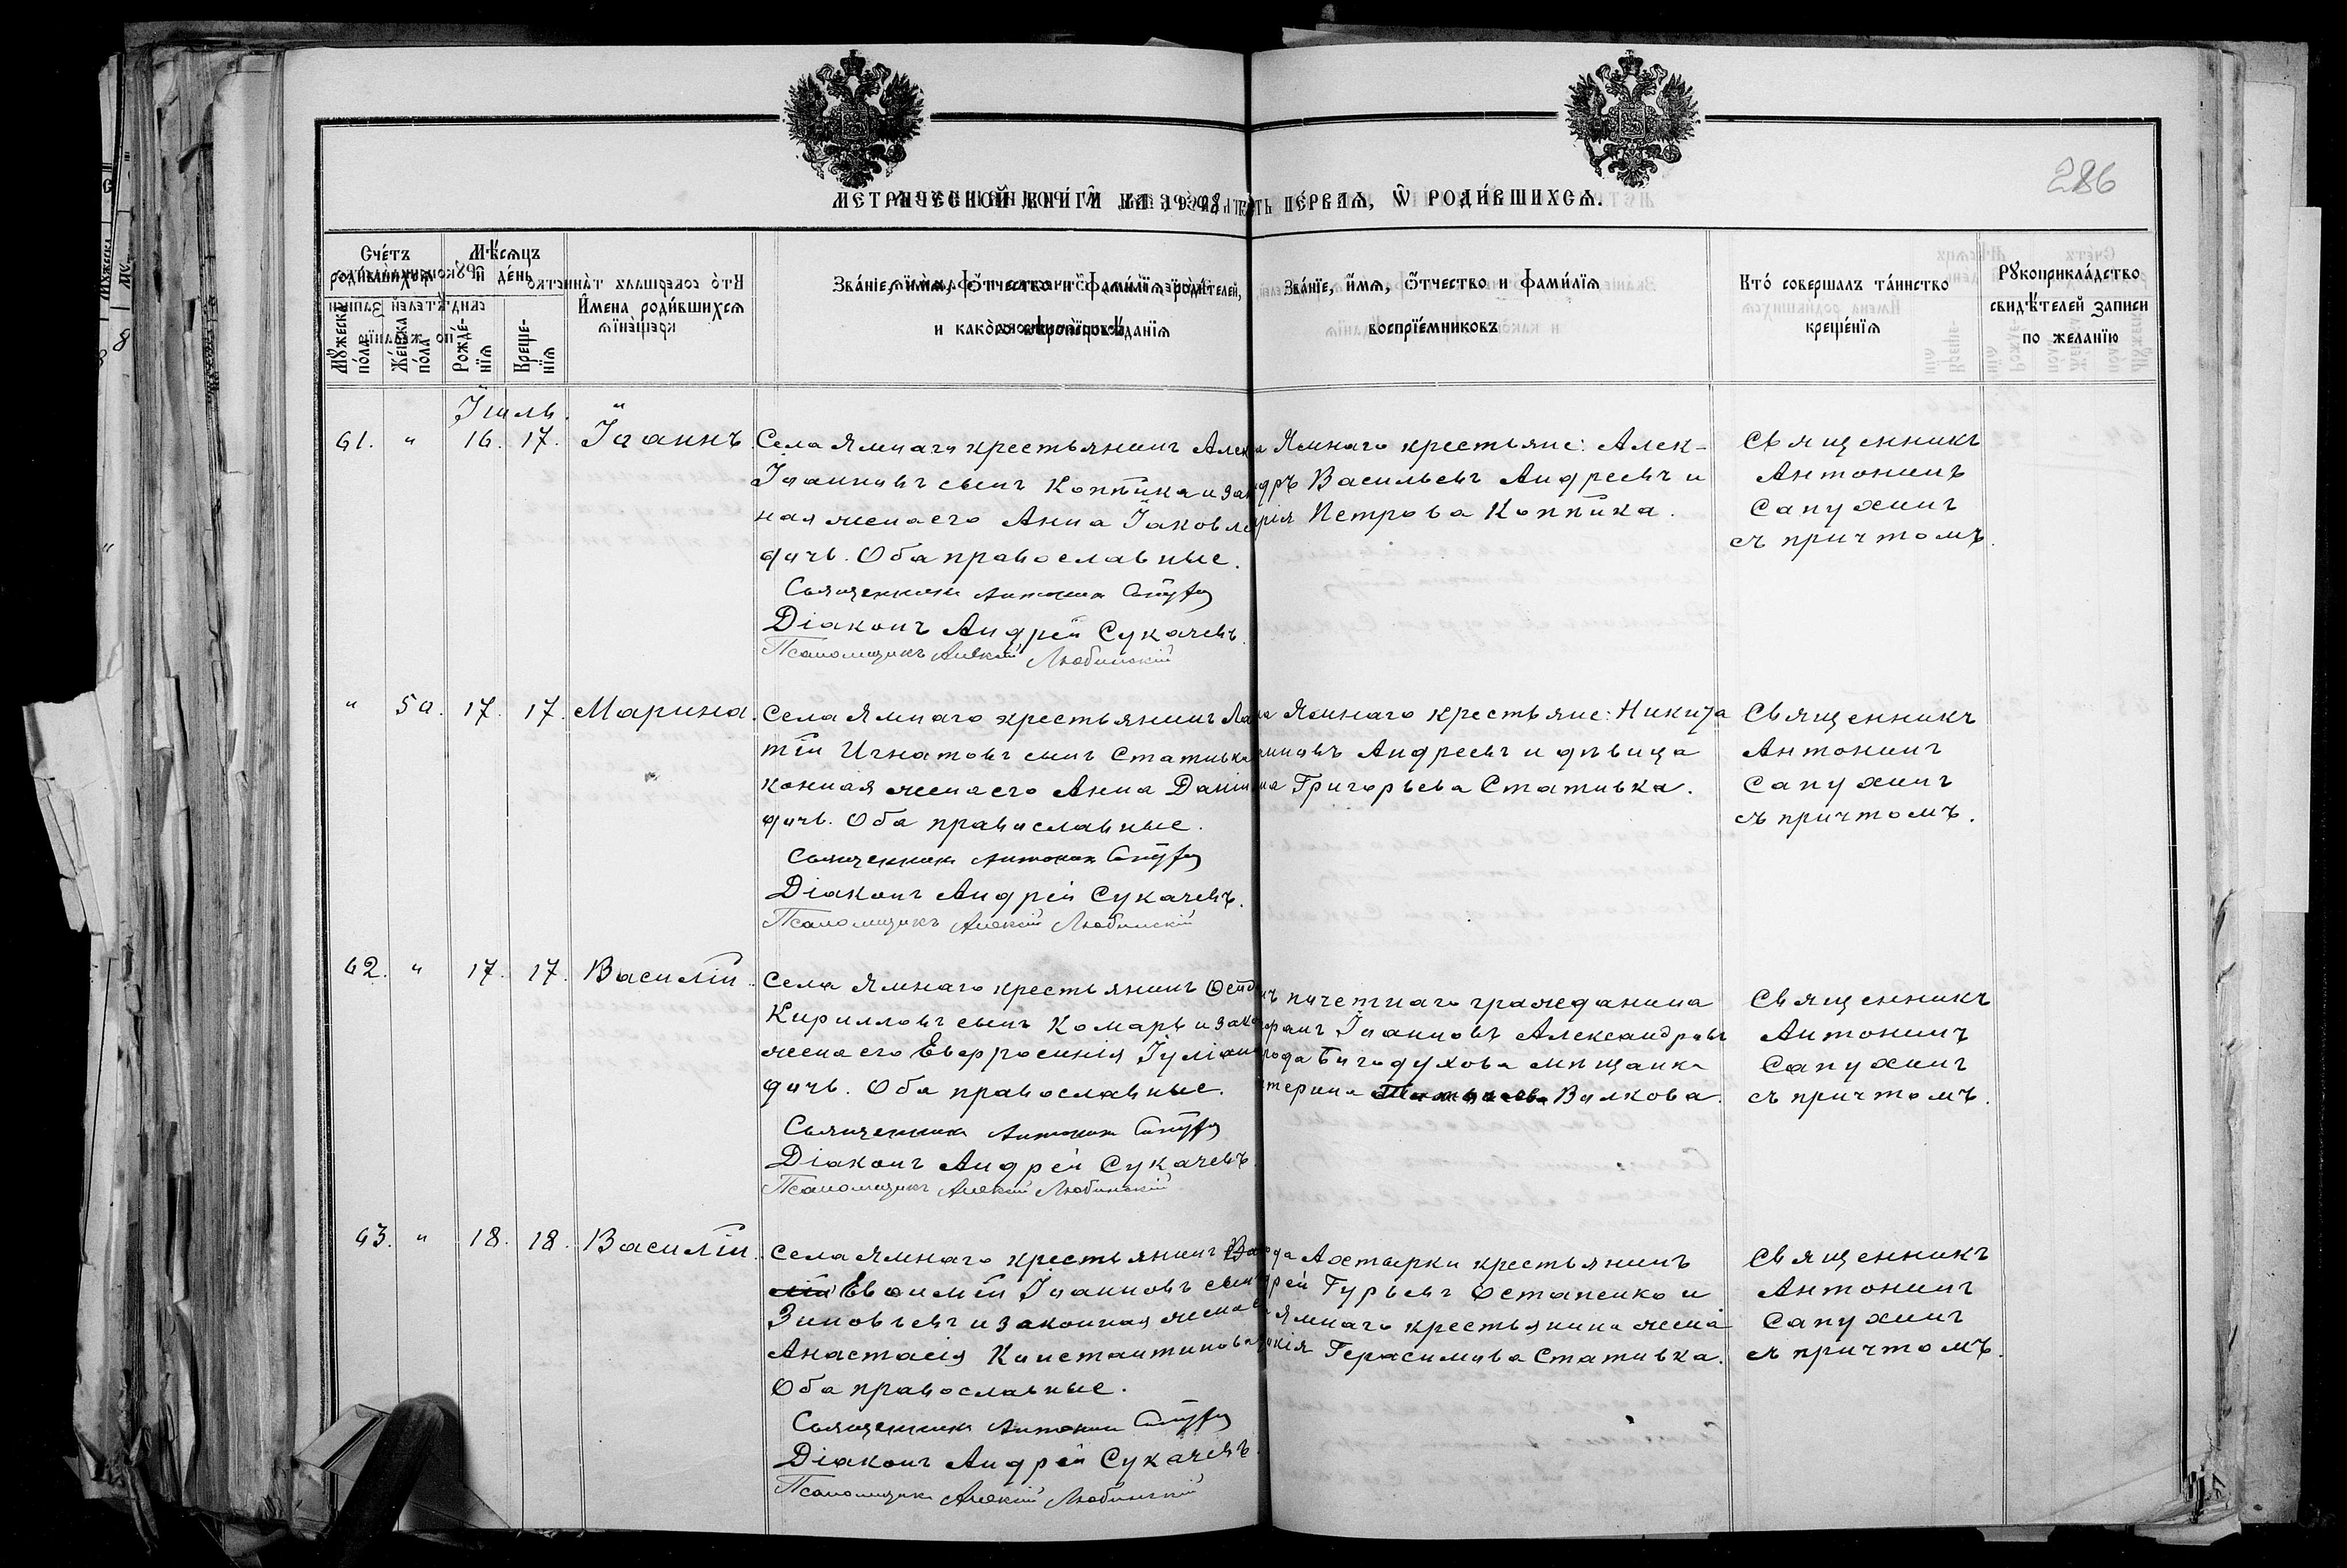 286
МЕТРИЧЕСКОЙ КНИГИ НА 1908
ЧАСТЬ ПЕРВАЯ, Ѿ РОДИВШИХСЯ.
Счетъ родившихся
Мужеска пола
Женска пола
Мѣсяцъ и день
Рожде-нія
Креще-нія
Имена родившихся
Званіе, имя, ѿтчество и фамилія родителей,
и какого вѣроисповѣданія
Званіе, имя, ѿтчество и фамилія
воспріемниковъ
Кто совершалъ таинство
крещенія
Рукоприкладство
свидѣтелей записи
по желанію
Іюль.
61. " 16. 17. Іоаннъ.
Села Ямнаго крестьянинъ
Іоанновъ сынъ Коптика и
ная жена его Анна
дичъ. Оба православные.
Священникъ Антонин
Діаконъ Андрей Сукачевъ.
Псаломщикъ Алексій Любинскій
Ямнаго крестьяне: Алек-
Васильевъ Андреевъ и
Петрова Коптика.
Священникъ
Антонинъ
Сапухинъ
съ причтомъ.
" 50. 17. 17. Марина.
Села Ямнаго крестьянинъ
тій Игнатовъ сынъ Стативка
конная жена его Анна
дичъ. Оба православные.
Священникъ Антонин
Діаконъ Андрей Сукачевъ.
Псаломщикъ Алексій Любинскій
Ямнаго крестьяне: Никита
Андреевъ и дѣвица
Григорьева Стативка.
Священникъ
Антонинъ
Сапухинъ
съ причтомъ.
62. " 17. 17. Василій.
Села Ямнаго крестьянинъ
Кирилловъ сынъ Комарь и
жена его Евфросинія
дичъ. Оба православные.
Священникъ Антонин
Діаконъ Андрей Сукачевъ
Псаломщикъ Алексій Любинскій
почетнаго гражданина
Іоанновъ Александровъ
Богодухова мѣщанка
Волкова.
Священникъ
Антонинъ
Сапухинъ
съ причтомъ.
63. " 18. 18. Василій.
Села Ямнаго крестьянинъ
Евѳимій Іоанновъ сынъ
Зиновьевъ и законная жена
Анастасія Константинова
Оба православные.
Священникъ Антонин
Діаконъ Андрей Сукачевъ.
Псаломщикъ Алексій Любинскій
Ахтырки крестьянинъ
Гурьевъ Остапенко и
Ямнаго крестьянина жена
Герасимова Стативка.
Священникъ
Антонинъ
Сапухинъ
съ причтомъ.